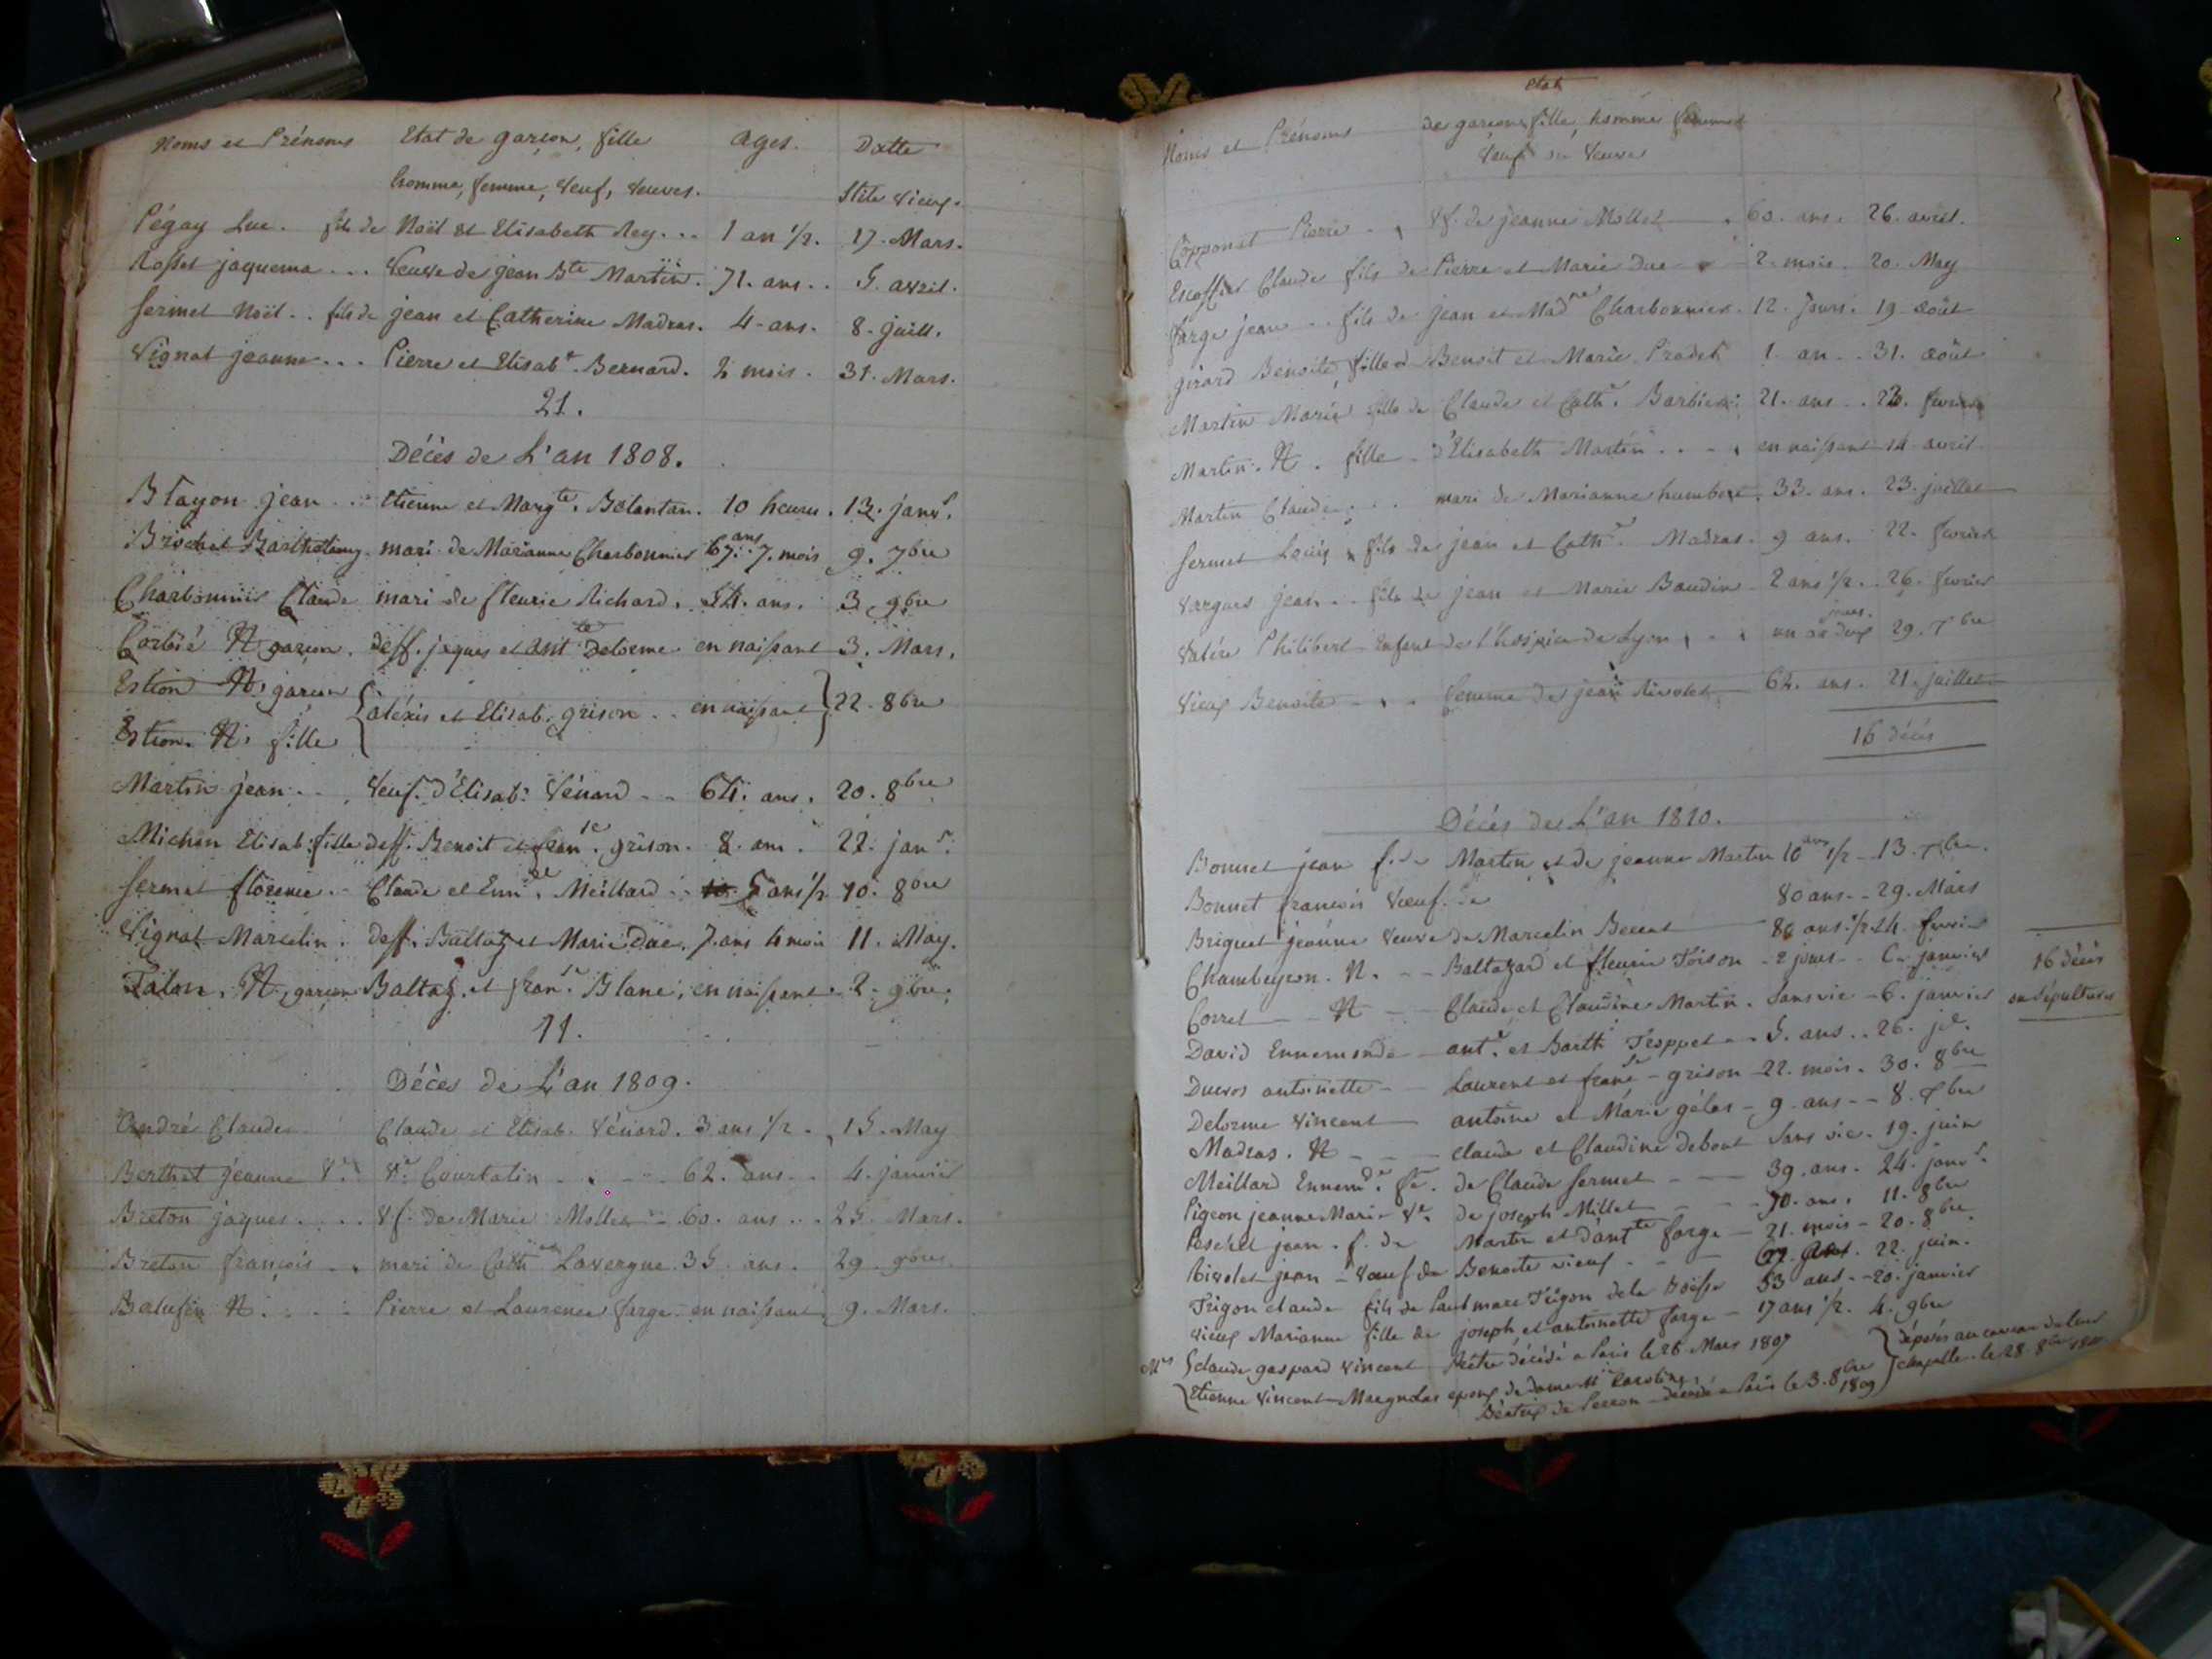 Noms et Prénoms Etat de garçon, fille ages. Datte
homme, femme, veuf, veuves. Stile vieux.
Pégay Luc. fils de Noël et Elisabeth Rey... 1 an 1/2. 17. Mars.
Rosset jaquema... Veuve de jean Bte Martin. 71. ans.. 5. avril.
Sermet Noël.. fils de jean et Catherine Madras. 4. ans. 8. juill.
Vignat jeanne... Pierre et Elisabt. Bernard. 2 mois. 31. Mars.
21.
Décès de L'an 1808.
Blayon jean.. etienne et Margte. Belantan. 10 heures. 13. janvr.
Brochet Barthelemy. mari de Marianne Charbonnier 67. ans 7. mois 9. 7bre
Charbonnier Claude mari de fleurie Richard. 54. ans. 3 9bre
Corbié N garçon. deff. jaques et antte Delorme en naissant 3. Mars.
Estion N. garçon
aléxis et Elisab. grison.. en naissant 22. 8bre
Estion. N. fille
Martin jean.. Veuf. d'Elisab. Vénard.. 64. ans. 20. 8bre
Michon Elisab. fille deff. Benoit et fran.se grison. 8. ans. 22. janr.
Sermet florence.. Claude et Enn.de Meillard.. 5 ans 1/2 10. 8bre
Vignat Marcelin. deff. Baltaz. et Marie Duc. 7. ans 4 mois 11. May.
Talon, N, garçon Baltaz. et fran.se Blanc, en naissant. 2. 9bre.
11.
Décès de L'an 1809.
André Claude Claude et Elisab. Vénard. 3 ans 1/2. 15. May
Berthet jeanne Ve. Ve. Courtalin... 62. ans.. 4. janvier
Breton jaques.... Vf. de Marie Mollet - 60. ans... 25. Mars.
Breton françois.. mari de Cathne Lavergne. 35. ans. 29. 9bre.
Balufin N.... Pierre et Laurence farge. en naissant 9. Mars.
Etat
Noms et Prénoms de garçons, fille, homme femmes
Veufs ou Veuves
Copponat Pierre.. Vf. de jeanne Mollet 60. ans. 26. avril.
Escoffier Claude fils de Pierre et Marie Duc 2. mois. 20. May
farge jean.. fils de jean et Madne Charbonnier. 12. jours. 19. août
girard Benoite, fille de Benoit et Marie Pradet 1. an.. 31. août
Martin Marie fille de Claude et Cath.e Barbier. 21. ans.. fevrier
Martin. N. fille d'Elisabeth Martin... en naissant 14 avril
Martin Claude... mari de Marianne humbert. 33. ans. 23. juillet
Sermet Louis fils de jean et Cath.e Madras. 9 ans. 22. fevrier
Vargues jean.. fils de jean et Marie Baudin 2 ans 1/2.. 26. fevrier
Valére Philibert Enfant de l'hospice de Lyon jours. 29. 7bre
Vieux Benoite... femme de jean Rivolet 62. ans. 21. juillet
16 décès
Décès de L'an 1810.
Bonnet jean f. de Martin et de jeanne Martin 10 ans 1/2 - 13. 7bre.
Bonnet francois Veuf. de 80 ans.. 29. Mars
Briquet jeanne Veuve de Marcelin 80 ans. 1/2 24. fevrier
Chambeyron. N. - - Baltazard et fleurie Toison - 2 jours - 6 - janvier 16 décès
Corret - N - Claude et Claudine Martin. Sans vie - 6. janvier ou sépultures
David Ennemonde ant.e et Barth Troppet - 5. ans.. 26. jet.
Ducros antoinette - Laurent et franse - grison - 22. mois. 30. 8bre
Delorme Vincent antoine et Marie gélas - 9. ans - - 8. 7bre
Madras. N - - - claude et Claudine debout Sans vie. 19. juin
Meillard Ennemde. fe. de Claude Sermet - - - 39. ans. 24. janvr.
Pigeon jeanne Marie Ve. de joseph Millet - - - 70. ans. 11. 8bre
Peschet jean. f. de Martin et d'antte farge - 21. mois - 20. 8bre
Rivolet jean - Veuf de Benoite vieux - - 22. juin.
Trigon claude fils de Trigon de la 53 ans - - 20. janvier
Vieux Marianne fille de joseph et antoinette farge - 17 ans 1/2. 4. 9bre
Mrs Claude gaspard Vincent Prêtre décédé a Paris le 26 Mars 1807 déposés au caveau de leur
Etienne Vincent Margnolas epoux de dame Caroline chapelle. le 28. 8bre 1810
Béatrix de Perron - décédé a Paris le 3. 8bre 1809